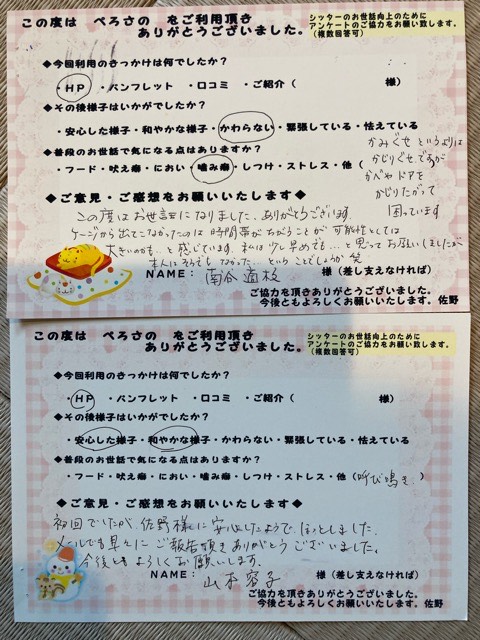 この度は ぺろさの をご利用頂き
ありがとうございました。
シッターのお世話向上のために
アンケートのご協力をお願い致します。
(複数回答可)
◆今回利用のきっかけは何でしたか?
・HP ・パンフレット ・口コミ ・ご紹介 ( 様)
◆その後様子はいかがでしたか?
・安心した様子・和やかな様子・かわらない・緊張している・怯えている
◆普段のお世話で気になる点はありますか?
・フード・吠え癖・におい・噛み癖・しつけ・ストレス・他(
かみぐせ というよりは
かじりぐせですが
かべや ドアを
かじりたがって
困っています
◆ご意見・ご感想をお願いいたします◆
この度はお世話になりました、ありがとうございます。
ケージから出てこなかったのは 時間帯がちがうことが 可能性としては
大きいのかも、と感じています。私は少し早めでも…と思ってお願いしましたが
本人はそうでもなかった、ということでしょうか 笑
NAME: 様(差し支えなければ)
ご協力を頂きありがとうございました。
今後ともよろしくお願いいたします。佐野
この度は ぺろさの をご利用頂き
ありがとうございました。
シッターのお世話向上のために
アンケートのご協力をお願い致します。
(複数回答可)
◆今回利用のきっかけは何でしたか?
・HP ・パンフレット ・口コミ ・ご紹介 ( 様)
◆その後様子はいかがでしたか?
・安心した様子・和やかな様子・かわらない・緊張している・怯えている
◆普段のお世話で気になる点はありますか?
・フード・吠え癖・におい・噛み癖・しつけ・ストレス・他(呼び鳴き)
◆ご意見・ご感想をお願いいたします◆
初回でしたが、佐野様に安心したようで、ほっとしました。
メールでも早々に ご報告頂き ありがとう ございました。
今後とも よろしく お願いします。
NAME: 山本容子 様(差し支えなければ)
ご協力を頂きありがとうございました。
今後ともよろしくお願いいたします。佐野